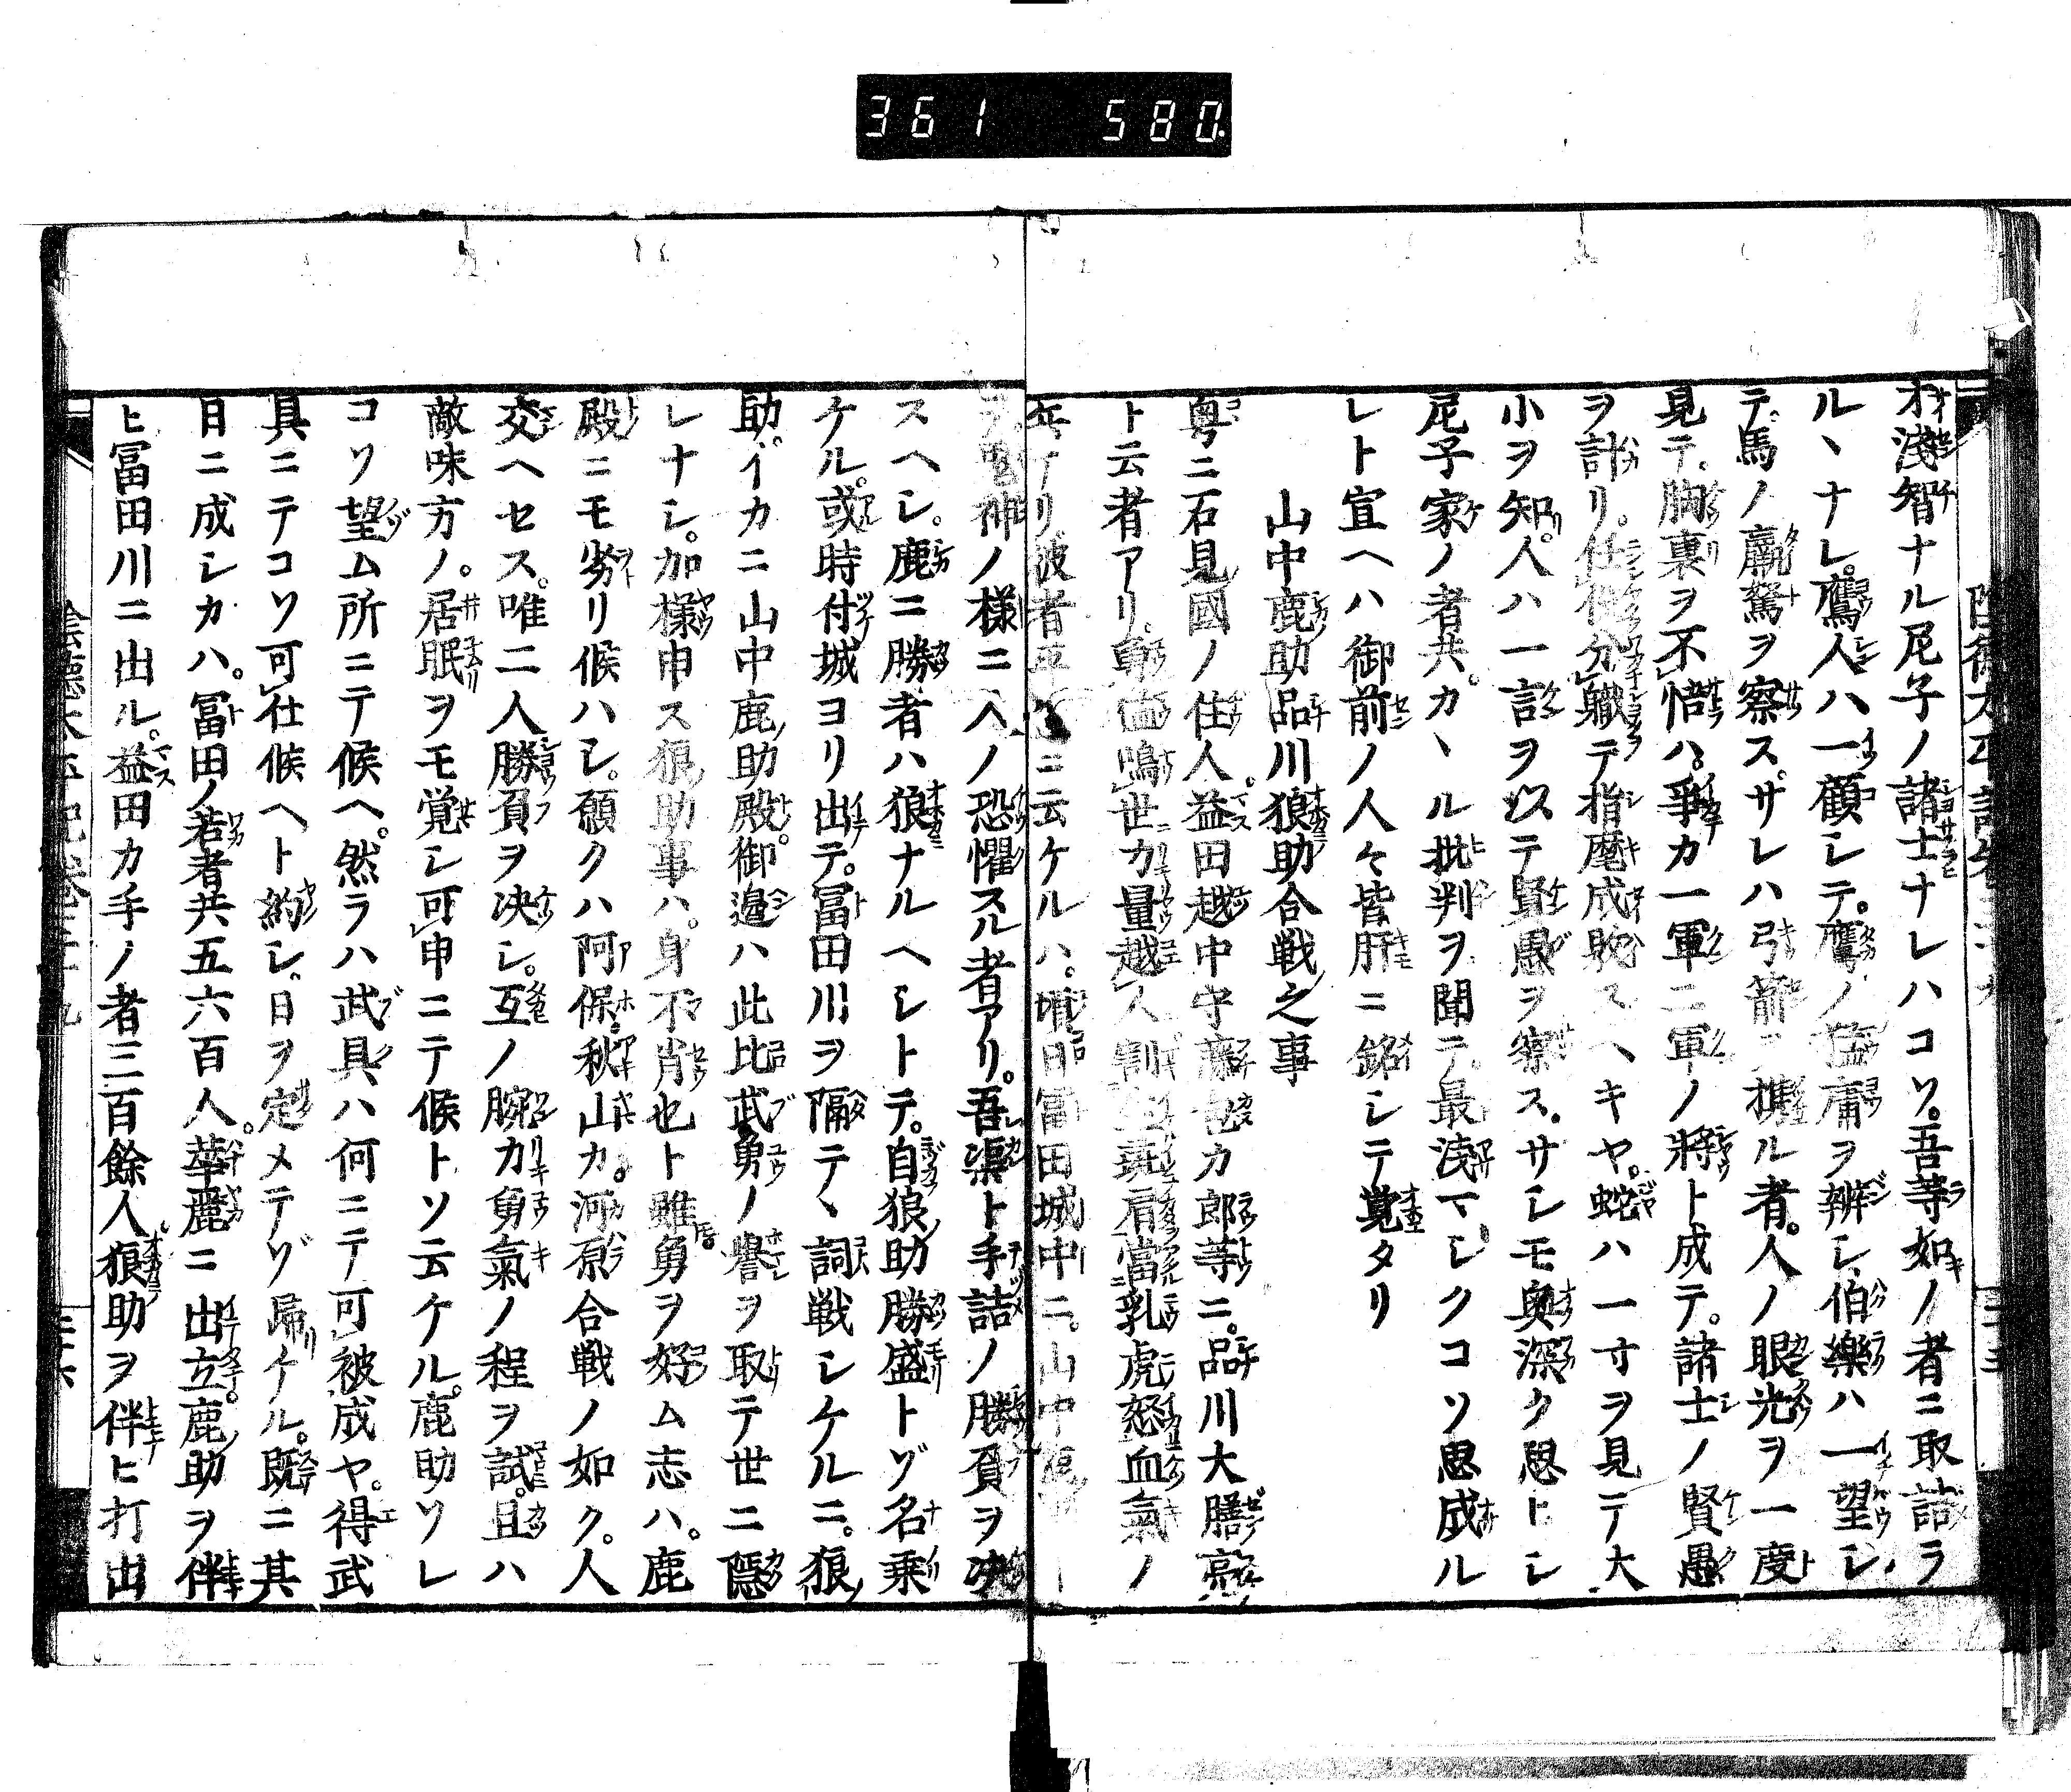 361 580.
才淺智ナル尼子ノ諸士ナレハコソ。吾等如ノ者ニ取詰ラ
ルヽナレ。鷹人ハ一顧シテ。鷹ノ猛庸ヲ辨シ、伯樂ハ一望シ
テ。馬ノ麄駑ヲ察ス。サレハ弓箭ニ携ル者。人ノ眼光ヲ一度
見テ。胸裏ヲ不悟ハ。爭カ一軍二軍ノ將ト成テ。諸士ノ賢愚
ヲ計リ。分職テ指麾成敗スヘキヤ。蛇ハ一寸ヲ見テ大
小ヲ知。人ハ一言ヲ以テ賢愚ヲ察ス。サシモ奥深ク思トシ
尼子家ノ者共。カヽル批判ヲ聞テ。最淺マシクコソ思成ル
レト宣ヘハ御前ノ人々皆肝ニ銘シテ覚タリ
山中鹿助品川狼助合戦之事
粤ニ石見國ノ住人。益田越中守藤カ郎等ニ。品川大膳亮
ト云者アリ。世力量越人割肩當乳虎怒血氣ノ
リ彼者ニ云ケルハ。日冨田城中ニ。山中
神ノ様ニ人ノ恐懼スル者アリ。吾渠ト手詰ノ勝負ヲ决
スヘシ。鹿ニ勝者ハ狼ナルヘシトテ。自狼助勝盛トゾ名乗
ケル。或時付城ヨリ出テ。冨田川ヲ隔テヽ詞戦シケルニ。狼
助。イカニ山中鹿助殿。御邉ハ此比武勇ノ譽ヲ取テ世ニ隠
レナシ。加様申ス狼助事ハ。身不肖也ト雖。勇ヲ好ム志ハ。鹿
殿ニモ劣リ候ハシ。願クハ阿保。秋山カ。河原合戦ノ如ク。人
交ヘセス。唯二人勝負ヲ决シ。互ノ腕力勇氣ノ程ヲ試。且ハ
敵味方ノ。居眠ヲモ覚シ可申ニテ候トソ云ケル。鹿助ソレ
コソ望ム所ニテ候ヘ。然ラハ武具ハ何ニテ可被成ヤ。得武
具ニテコソ可仕候ヘト約シ。日ヲ定メテゾ帰ケル。既ニ其
日ニ成シカハ。冨田ノ若者共五六百人。華麗ニ出立。鹿助ヲ伴
ヒ冨田川ニ出ル。益田カ手ノ者三百餘人狼助ヲ伴ヒ打出